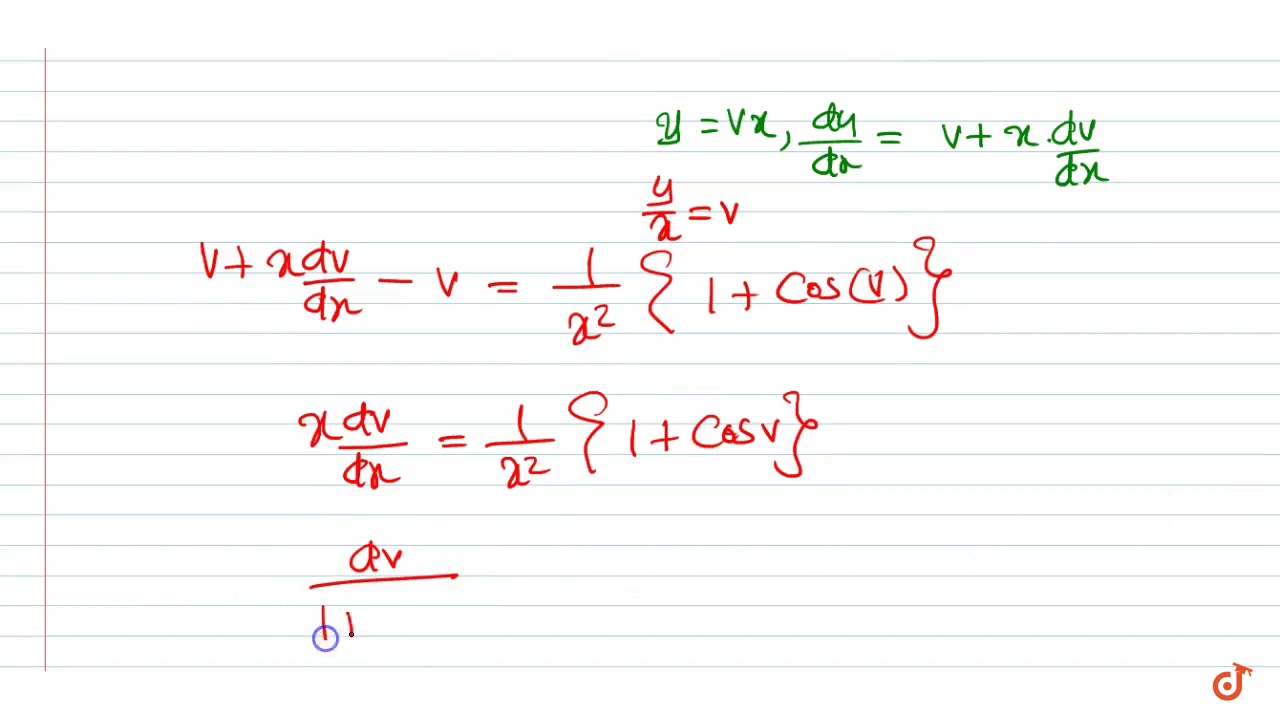 y = vx, dy/dx = v + x . dv/dx
y/x = v
v + x dv/dx - v = 1/x² { 1 + cos(v) }
x dv/dx = 1/x² { 1 + cos v }
dv